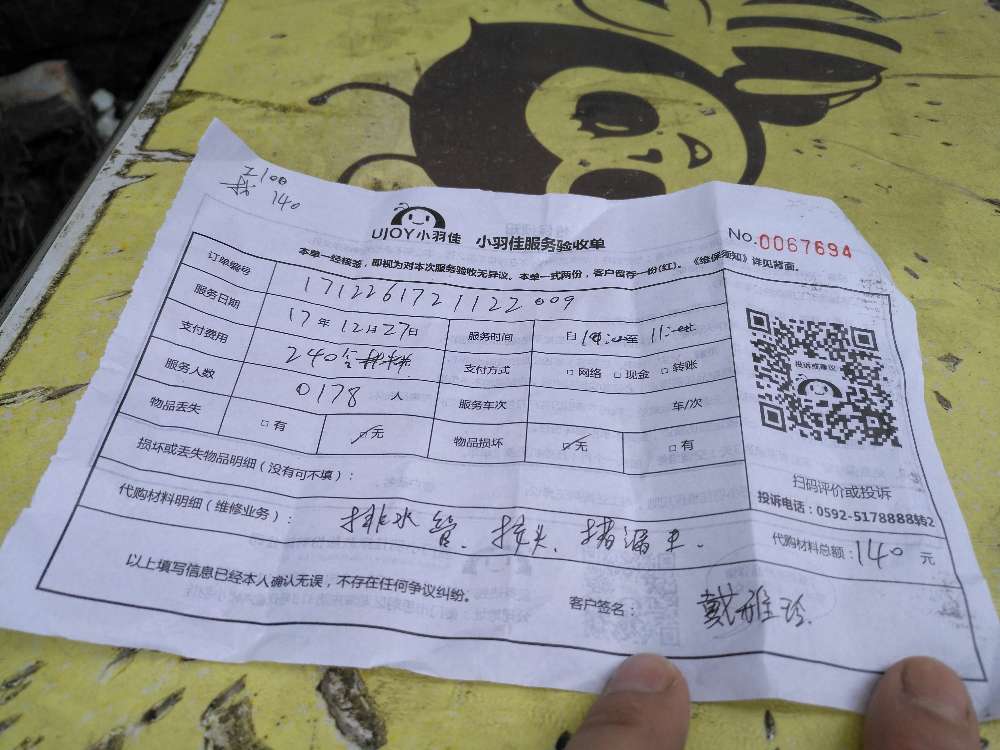 工100
材 140
UJOY小羽佳 小羽佳服务验收单
No.0067694
本单一经核签，即视为对本次服务验收无异议。本单一式两份，客户留存一份(红)。《维保须知》详见背面。
订单编号 1712261721122009
服务日期 17年12月27日 服务时间 日 至 11:
支付费用 240含 支付方式 □网络 □现金 □转账
服务人数 0178 人 服务车次 车/次
物品丢失 □有 ☑无 物品损坏 ☑无 □有
损坏或丢失物品明细（没有可不填）：
投诉或建议
扫码评价或投诉
投诉电话：0592-5178888转2
代购材料明细（维修业务）： 排水管、接头、堵漏王.
代购材料总额：140元
以上填写信息已经本人确认无误，不存在任何争议纠纷。
客户签名： 戴雅玲